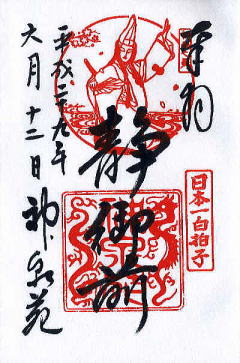 奉拝
日本一白拍子
静御前
平成二十九年
六月十二日
神泉苑